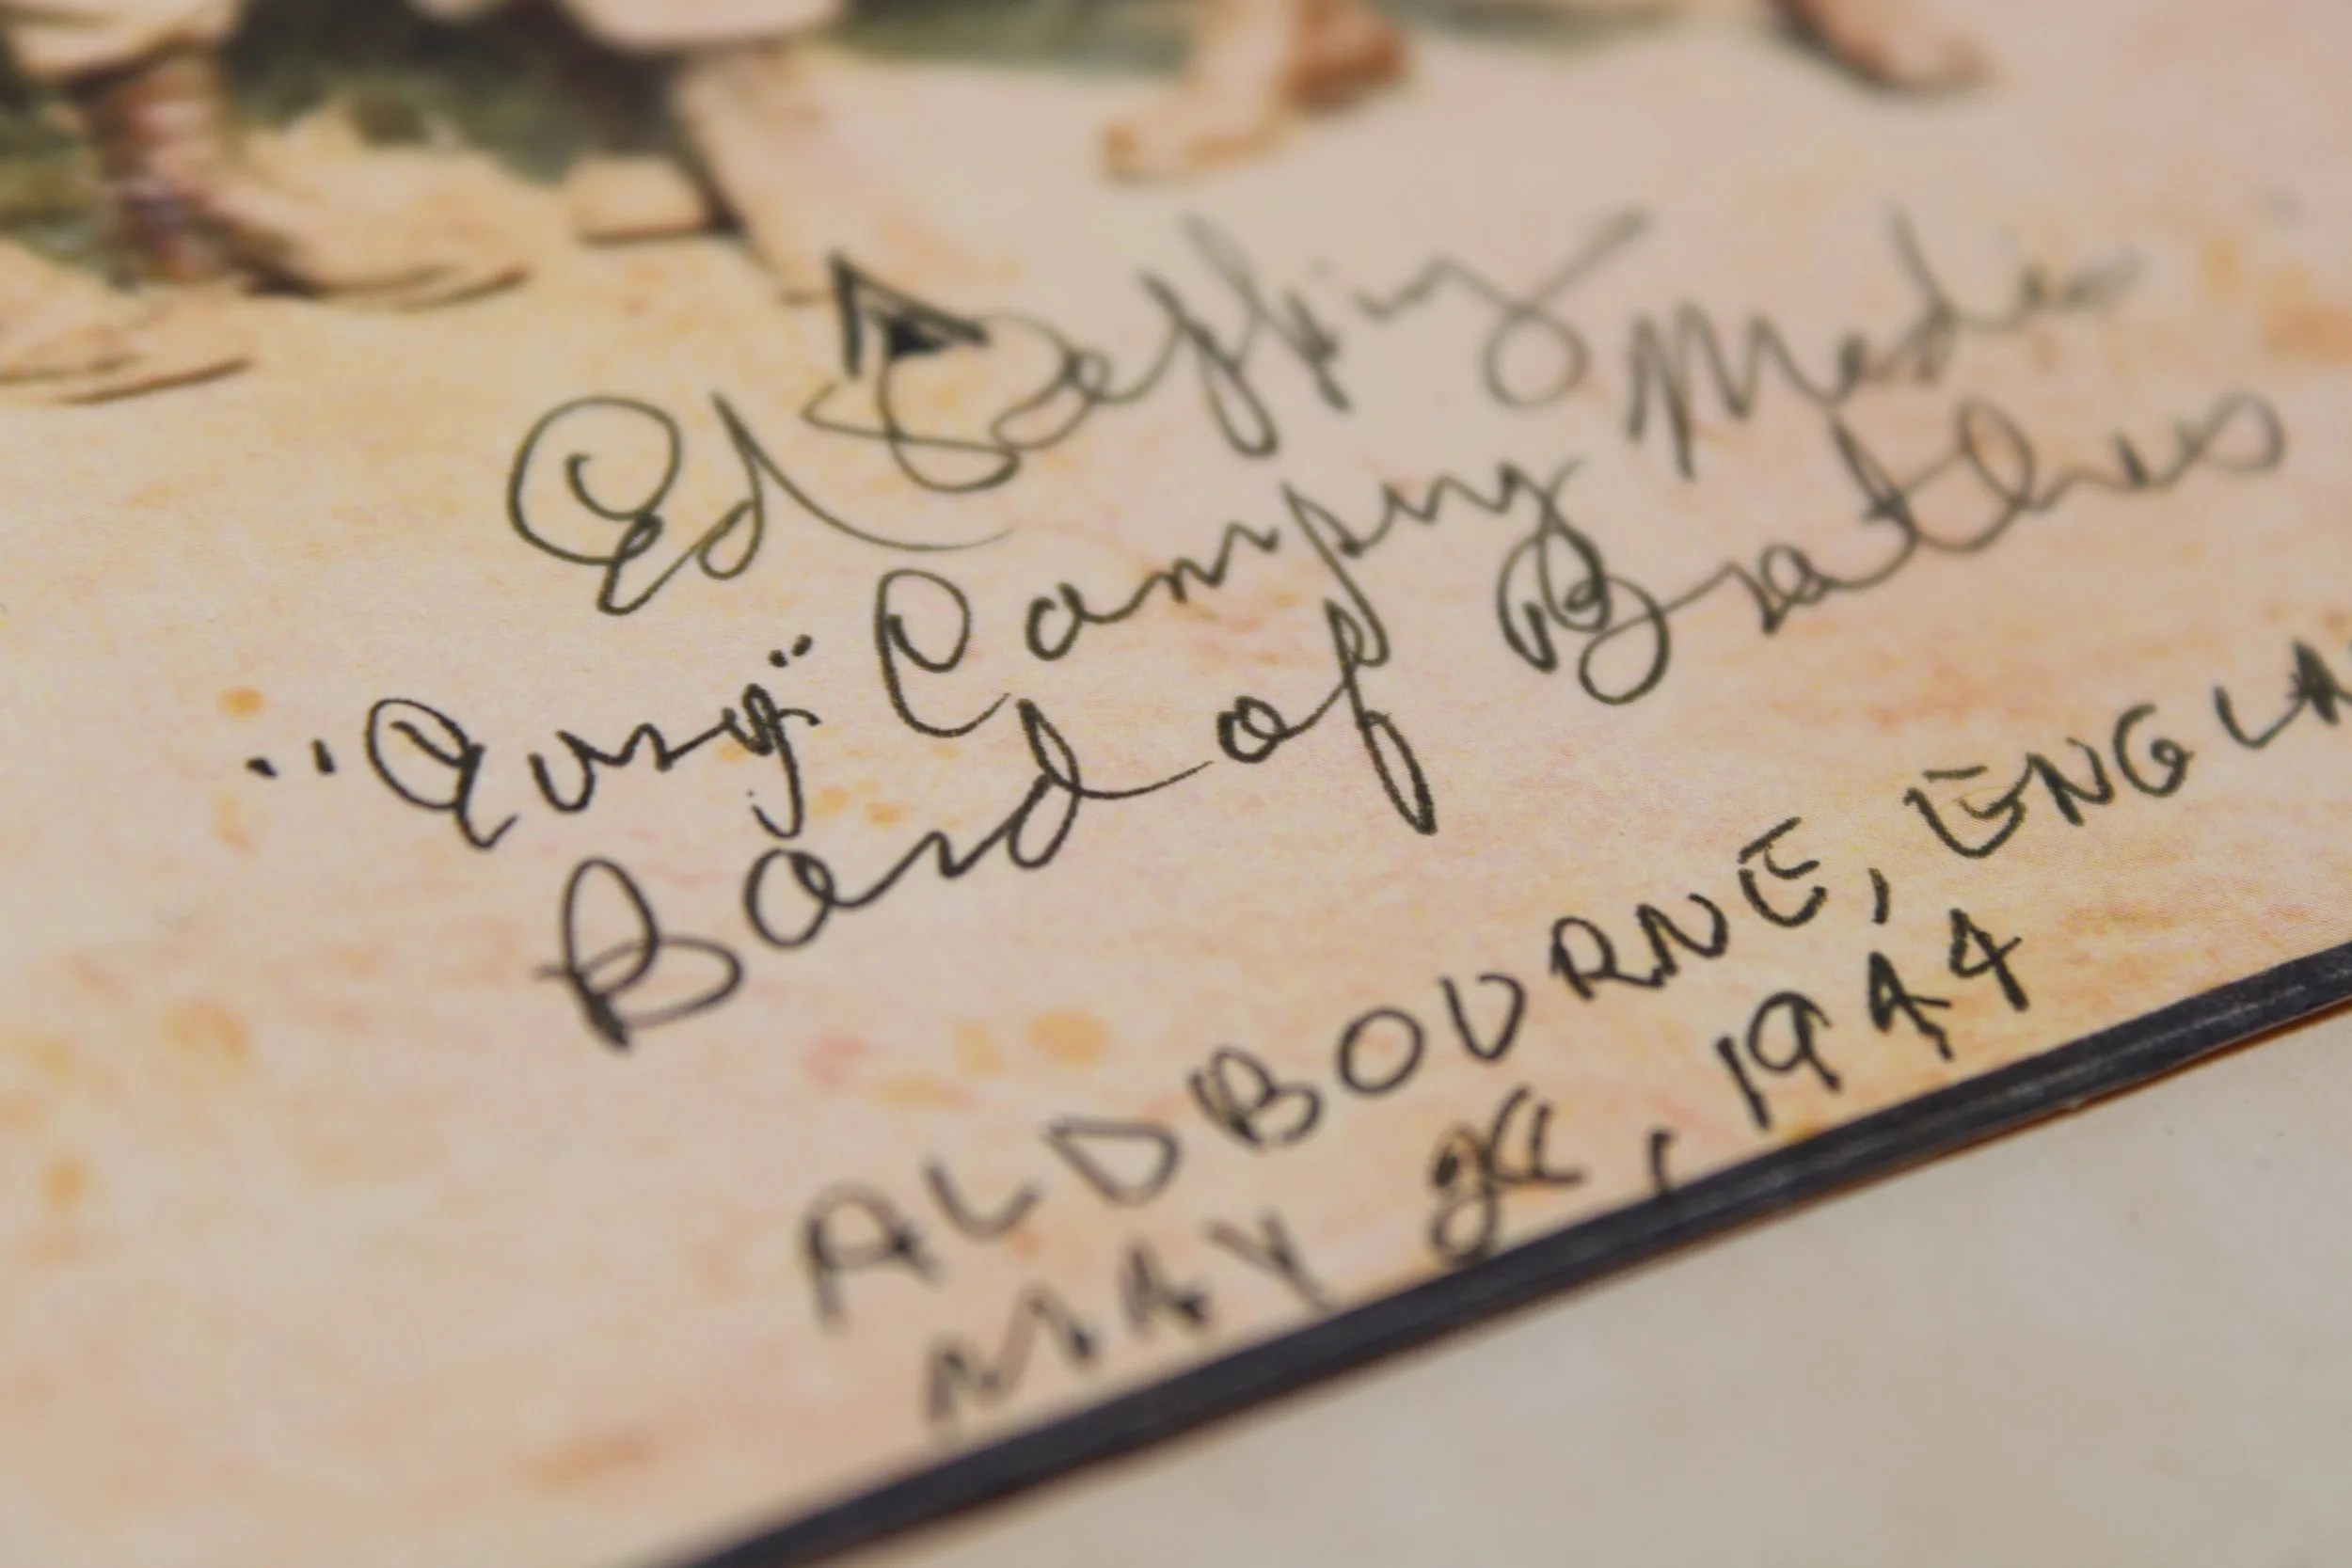 Ed Pepping Medic
"Easy" Company
Band of Brothers
ALDBOURNE, ENGLA
MAY , 1944